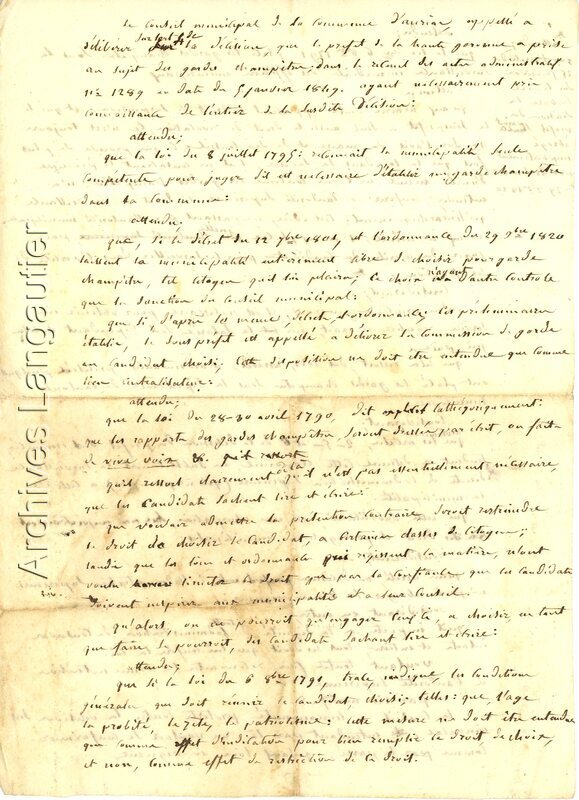 Le Conseil municipal de la Commune d'aurin, appellé a
délibérer sur la décision, que le prefet de la haute garonne a prise
au sujet des gardes champêtre, dans le recueil des actes administratif
n° 1289 en date du 5 janvier 1849. ayant nécessairement pris
connaissance de l'entier de la susdite Décision:
attendu;
que la loi du 8 juillet 1795: reconnait la municipalité seule
competente pour juger s'il est necessaire d'établir un garde champêtre
dans sa Commune:
attendu,
que, si le décret du 12 7bre 1801, et l'ordonnance du 29 9bre 1820
laissent la municipalité entièrement libre de choisir pour garde
champêtre, tel citoyen qu'il lui plaira; ce choix n'ayant d'autre controle
que la sanction du Conseil municipal:
que si, d'après les meme, décret et ordonnance: Ces préliminaires
établis, le sous préfet est appellé a délivrer la Commission de garde
au candidat choisi. Cette disposition ne doit être entendue que comme
lien centralisateur:
attendu;
que la loi du 28-30 avril 1790, dit cathégoriquement:
que les rapports des gardes champêtre, seront dressés par écrit, ou faits
de vive voix &
qu'il ressort clairement de la qu'il n'est pas essentiellement nécessaire,
que les Candidats sachent lire et écrire:
que vouloir admettre la prétention contraire, serait restreindre
le droit de choisir le Candidat, a certaines classes de citoyens;
tandis que les lois et ordonnances qui régissent la matière, n'ont
voulu limiter le droit que par la Confiance que les Candidats
doivent inspirer aux municipalité et a leur Conseil.
qu'alors, on ne pourrait qu'engager a choisir, en tant
que faire se pourrait, des Candidats sachant lire et écrire:
attendu;
que si la loi du 6 8bre 1791, trace, indique, les Conditions
générales que doit réunir le candidat choisi; telles: que, l'age
la probité, le zèle, le patriotisme: cette mesure ne doit être entendue
que comme effet d'indication pour bien remplir le droit de choix,
et non, comme effet de restriction de ce droit.
Archives Langautier